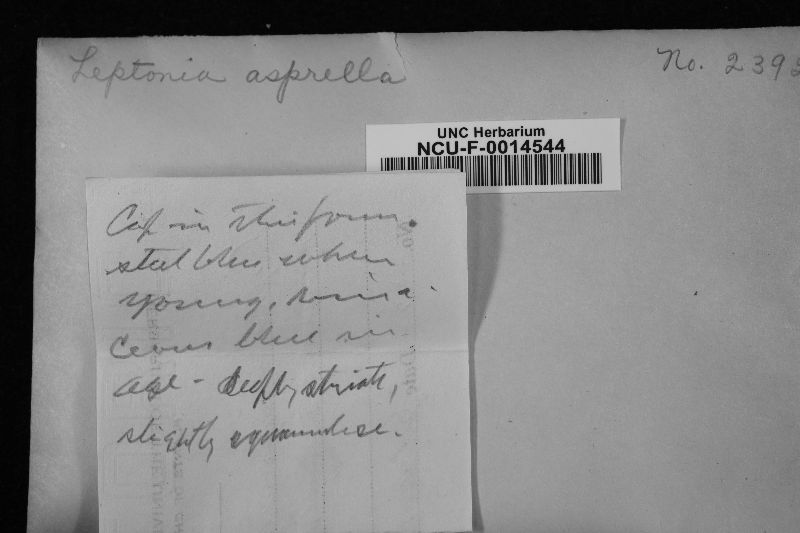 Leptonia asprella
No. 2392
UNC Herbarium
NCU-F-0014544
Cap in this form.
steel blue when
young,
blue in
age - deeply striate,
slightly squamulose.